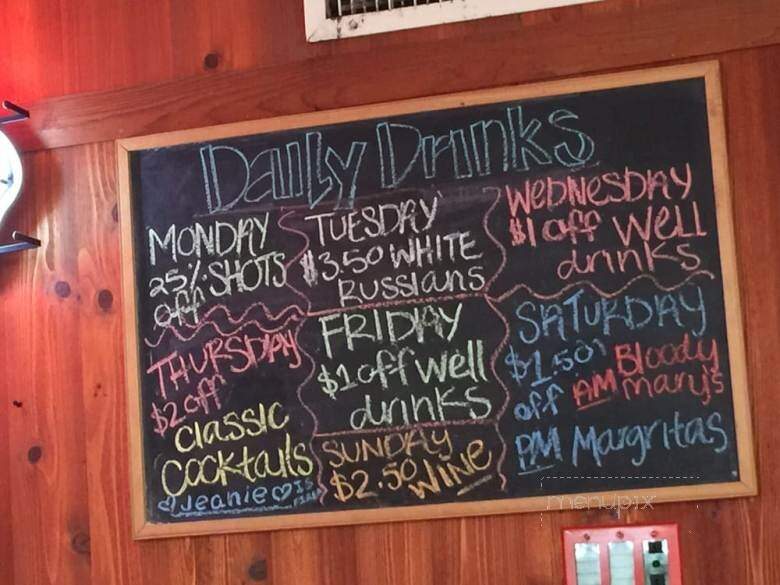 Daily Drinks
MONDAY
25% SHOTS
off
TUESDAY
$3.50 WHITE
RUSSIANS
WEDNESDAY
$1 off Well
drinks
THURSDAY
$2 off
Classic
Cocktails
♡Jeanie♡ IS
FRIDAY
$1 off well
drinks
SUNDAY
$2.50 WINE
SATURDAY
$1.50
off AM Bloody
mary's
PM Margritas
menupix